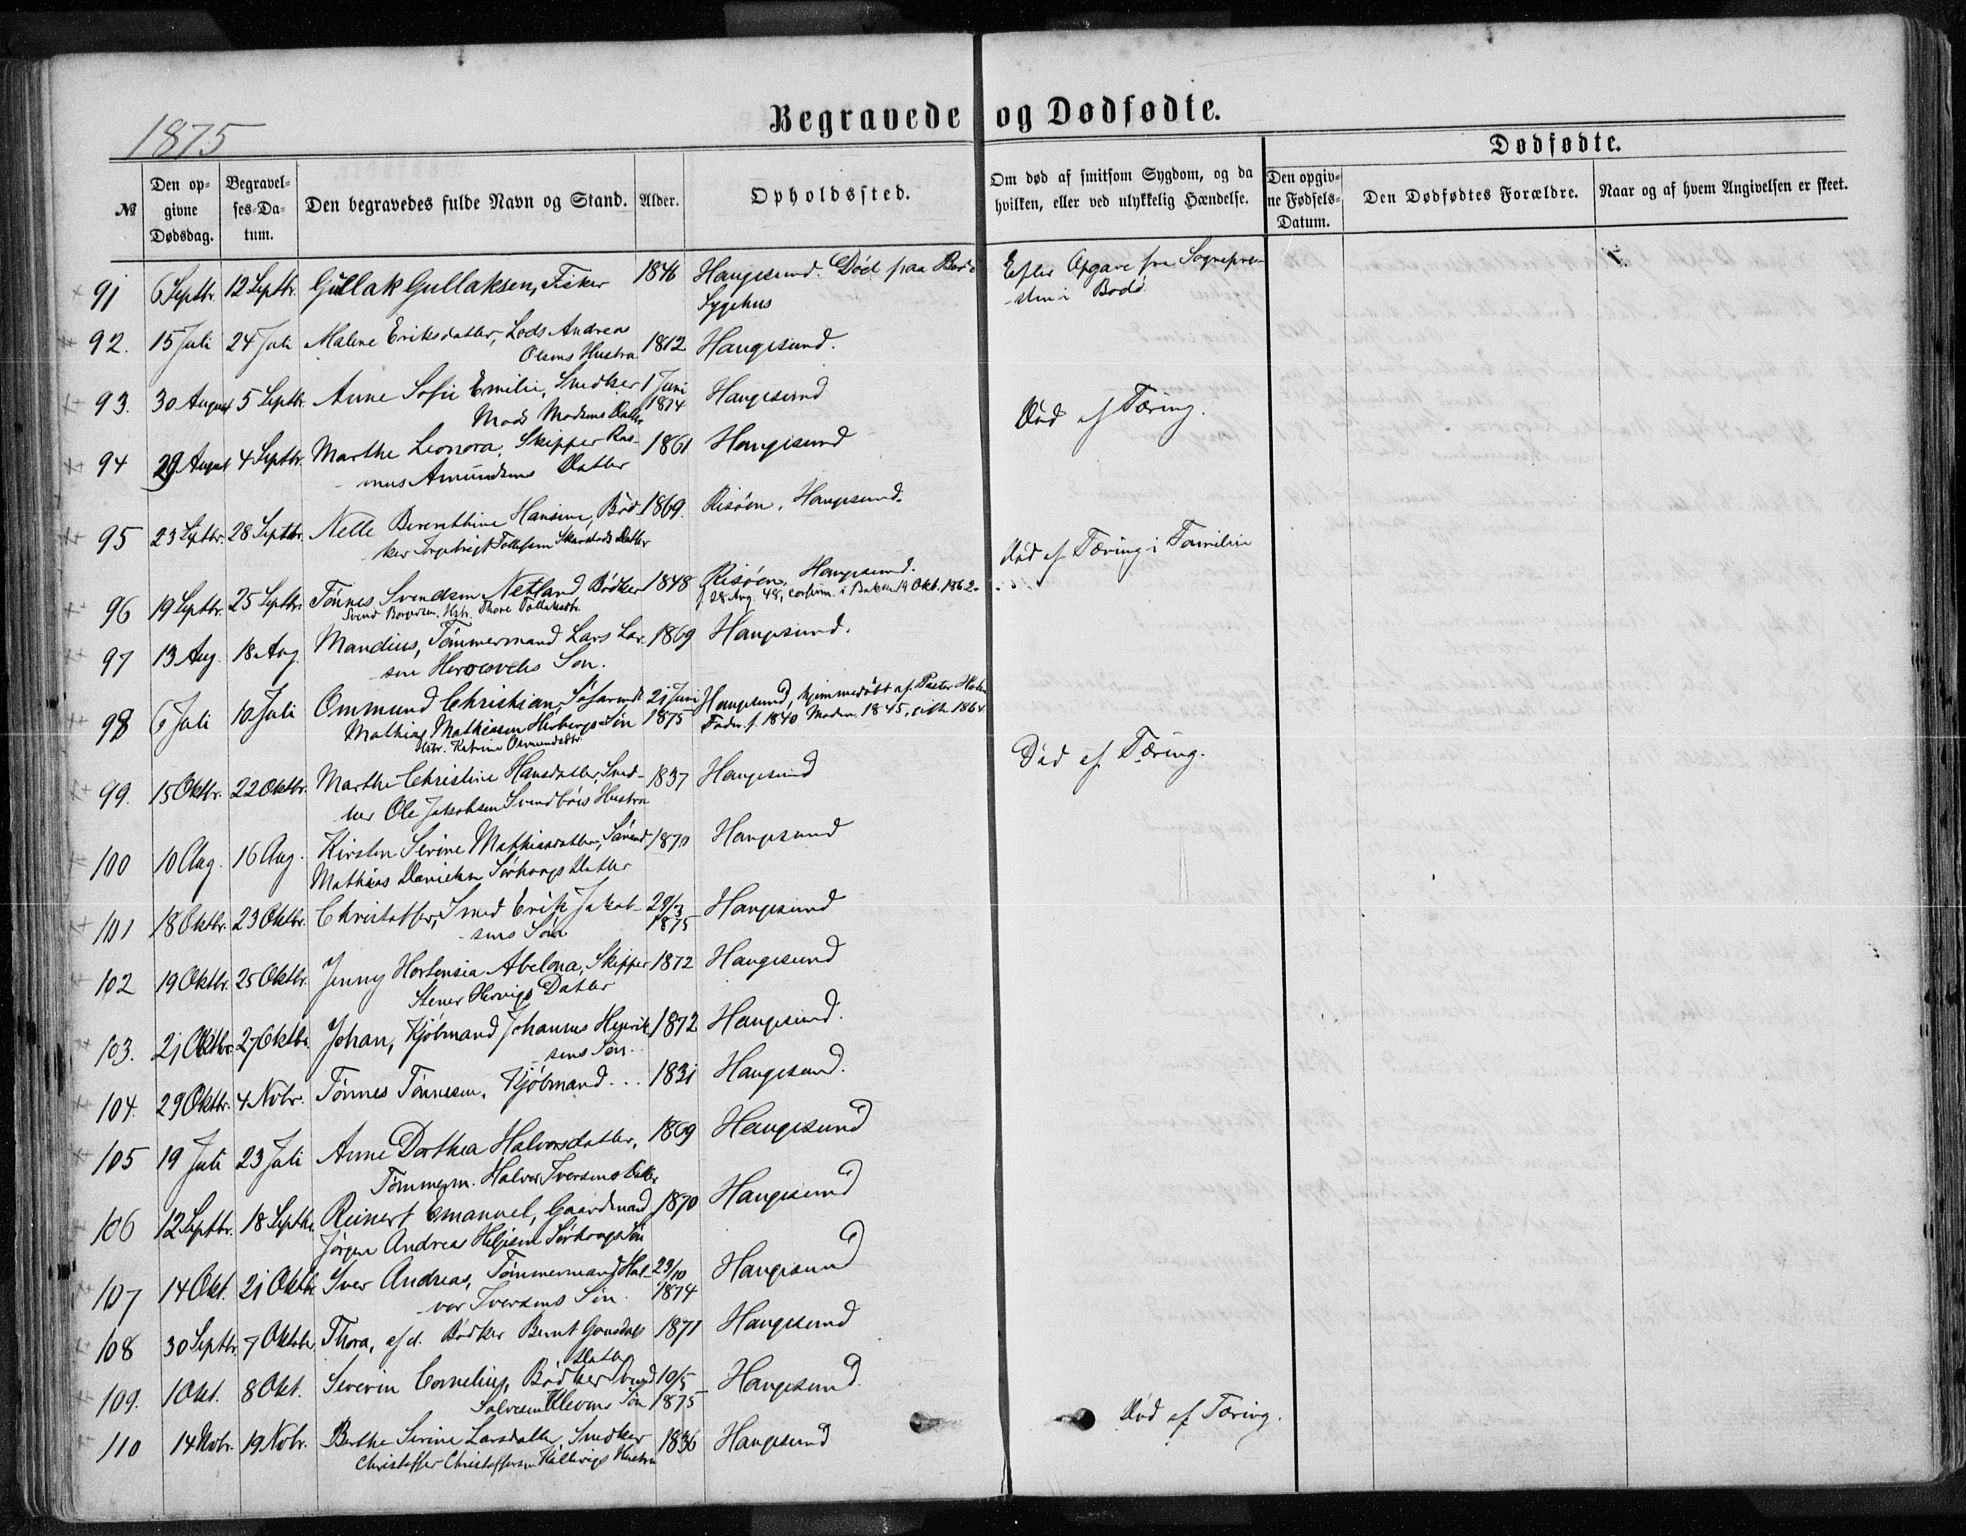 Begravede og Dødfødte.
1875
Dødfødte.
№
Den opgivne Dødsdag.
Begravelses-Datum.
Den begravedes fulde Navn og Stand.
Alder.
Opholdssted.
Om død af smitsom Sygdom, og da hvilken, eller ved ulykkelig Hændelse.
Den opgivne Fødsels-Datum.
Den Dødfødtes Forældre.
Naar og af hvem Angivelsen er skeet.
91 6 Septbr. 12 Septbr. Gullak Gullaksen, Fisker 1846 Haugesund. Død paa Bodø Efter Opgave fra Sognepre-
Sygehus -sten i Bodø.
92. 15 Juli 24 Juli Malene Eriksdatter, Lods Andreas
Olsens Hustru 1812 Haugesund.
93. 30 August 5 Septbr. Anne Sofie Emilie, Snedker 1 Juni Haugesund
Mads Madsens Datter 1874 Død af Tæring.
94 29 August 4 Septbr. Marthe Leonora, Skipper Ras- 1861 Haugesund
mus Amundsens Datter
95 23 Septbr. 28 Septbr. Nelle Berenthine Hansine, Bød- 1869. Risøen, Haugesund.
ker Tollefsen Datter Død af Tæring i Familien
96 19 Septbr. 25 Septbr. Tønnes Svendsen Netland, Bødker 1848 Risøen, Haugesund.
Svend Hstr. Thore f. 28 Aug. 48, confirm. i 19 Okt. 1862.
97 13 Aug. 18 Aug. Mandius, Tømmermand Lars Lar- 1869 Haugesund.
sen Søn.
98 6 Juli 10 Juli Ommund Christian, Søfarende 21 Juni Haugesund, hjemmedøbt af Pastor
Mathias Mathiassen Søn 1875 Fader f. 1840 Moder 1845, gift 1864
Hstr. Katrine Ommundsdtr.
99. 15 Oktbr. 22 Oktbr. Marthe Christine Hansdatter, Sned- 1837 Haugesund Død af Tæring.
ker Ole Jakobsen Hustru
100 10 Aug. 16 Aug. Kirsten Serine Mathiasdatter, 1870 Haugesund
Mathias Danielsen Sørhaugs Datter
101 18 Oktbr. 23 Oktbr. Christoffer, Smed Erik Jakob- 29/3 Haugesund
sens Søn 1875
102 19 Oktbr. 25 Oktbr. Jenny Hortensia Abelona, Skipper 1872 Haugesund
Stener Hervigs Datter
103. 21 Oktbr. 27 Oktbr. Johan, Kjøbmand Johannes Henrik- 1872 Haugesund.
sens Søn.
104. 29 Oktbr. 4 Novbr. Tønnes Tønnesen, Kjøbmand... 1831 Haugesund.
105 19 Juli 23 Juli Anne Dorthea Halvorsdatter, 1869 Haugesund
Tømmerm. Halvor Iversens Datter
106 12 Septbr. 18 Septbr. Reinert Emanuel, Gaardmand 1870 Haugesund
Jørgen Andreas Helgesen Sørhaugs Søn
107 14 Okt. 21 Oktbr. Iver Andreas, Tømmermand Hal- 23/10 Haugesund
vor Iversens Søn. 1874
108 30 Septbr. 7 Oktober Thora, af d. Bødker Bernt Gonsdals 1871 Haugesund
Datter
109. 1 Okt. 8 Okt. Severin Cornelius, Bødker Svend 10/5 Haugesund.
Salvesen Klevens Søn 1875
110 14 Nobr. 19 Nobr. Berthe Serine Larsdatter, Snedker 1836 Haugesund Død af Tæring.
Christoffer Christoffersen Hustru